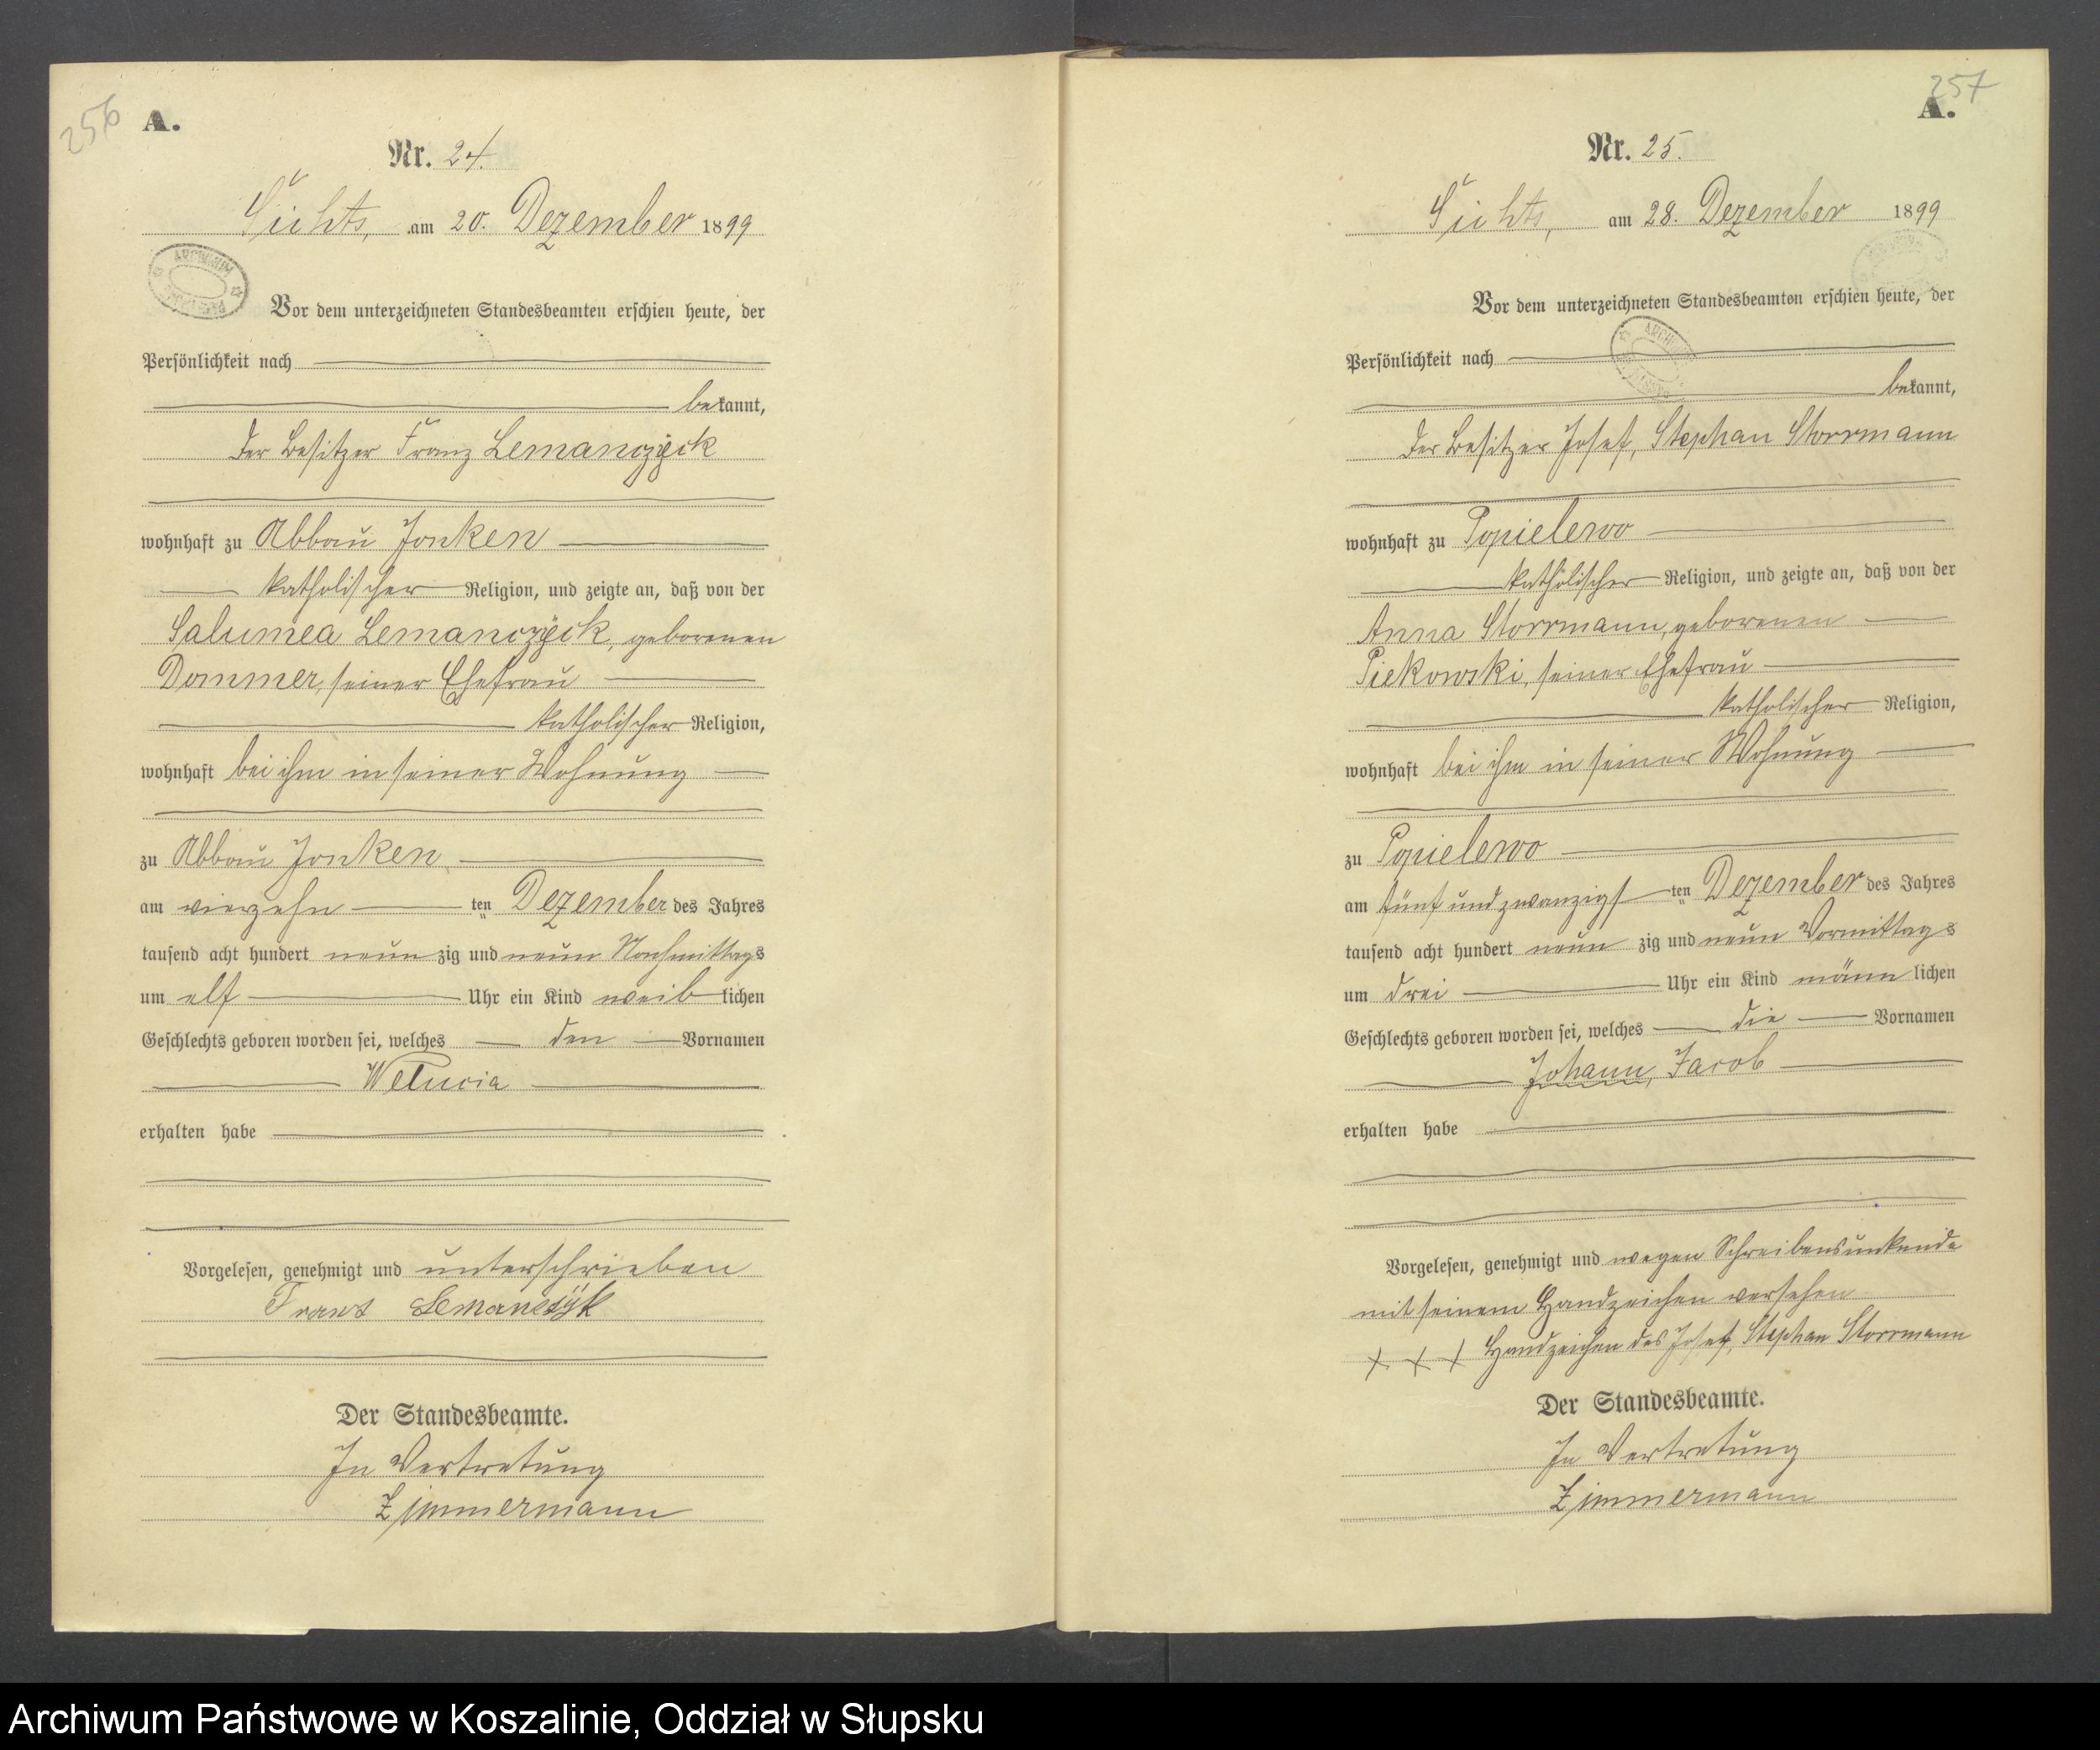 256
A.
Nr. 24.
Sichts, am 20. Dezember 1899
ARCHIWUM
Vor dem unterzeichneten Standesbeamten erschien heute, der
Persönlichkeit nach
bekannt,
der Besitzer Franz Lemanczÿck
wohnhaft zu Abbau Jonken
katholischer Religion, und zeigte an, daß von der
Salumea Lemanczÿck, geborenen
Dommer, seiner Ehefrau
katholischer Religion,
wohnhaft bei ihm in seiner Wohnung
zu Abbau Jonken
am vierzehn ten Dezember des Jahres
tausend acht hundert neun zig und neun Nachmittags
um elf Uhr ein Kind weib lichen
Geschlechts geboren worden sei, welches den Vornamen
erhalten habe
Vorgelesen, genehmigt und unterschrieben
Franz Lemanczÿk
Der Standesbeamte.
In Vertretung
Zimmermann
257
A.
Nr. 25.
Sichts, am 28. Dezember 1899
Vor dem unterzeichneten Standesbeamten erschien heute, der
Persönlichkeit nach
bekannt,
der Besitzer Josef, Stephan Storrmann
wohnhaft zu Popielewo
katholischer Religion, und zeigte an, daß von der
Anna Storrmann, geborenen
Piekowski, seiner Ehefrau
katholischer Religion,
wohnhaft bei ihm in seiner Wohnung
zu Popielewo
am fünf und zwanzigs ten Dezember des Jahres
tausend acht hundert neun zig und neun Vormittags
um drei Uhr ein Kind männ lichen
Geschlechts geboren worden sei, welches die Vornamen
Johann, Jacob
erhalten habe
Vorgelesen, genehmigt und wegen Schreibensunkunde
mit seinem Handzeichen versehen
+ + + Handzeichen des Josef, Stephan Storrmann
Der Standesbeamte.
In Vertretung
Zimmermann
Archiwum Państwowe w Koszalinie, Oddział w Słupsku